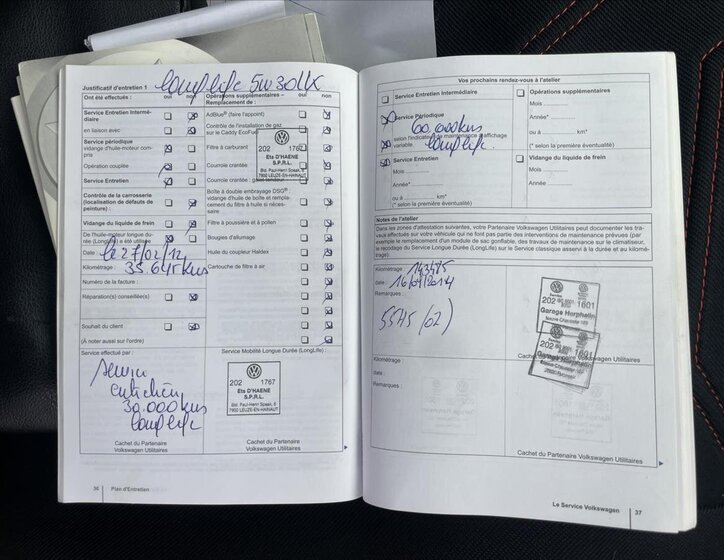 Justificatif d'entretien 1
Longlife 5W30LLX
Ont été effectués : oui non
Service Entretien Intermé-
diaire
en liaison avec
Service périodique
vidange d'huile-moteur com-
pris
Opération couplée
Service Entretien
Contrôle de la carrosserie
(localisation de défauts de
peinture) :
Vidange du liquide de frein
De l'huile-moteur longue du-
rée (LongLife) a été utilisée
Date : le 27/02/12
Kilométrage : 35.645 kms
Numéro de la facture :
Réparation(s) conseillée(s)
Souhait du client
(À noter aussi sur l'ordre)
Opérations supplémentaires –
Remplacement de : oui non
AdBlue® (faire l'appoint)
Contrôle de l'installation de gaz
sur le Caddy EcoFuel
Filtre à carburant
Courroie crantée
Courroie crantée :
Boîte à double embrayage DSG® :
vidange d'huile de boîte et rem-
placement du filtre à huile si néces-
saire
Filtre à poussière et à pollen
Bougies d'allumage
Huile du coupleur Haldex
Cartouche de filtre à air
202 1767
Ets D'HAENE
S.P.R.L.
Bld. Paul-Henri Spaak, 6
7900 LEUZE-EN-HAINAUT
Service effectué par :
Service
entretien
30.000 kms
longlife
Cachet du Partenaire
Volkswagen Utilitaires
Service Mobilité Longue Durée (LongLife) :
202 1767
Ets D'HAENE
S.P.R.L.
Bld. Paul-Henri Spaak, 6
7900 LEUZE-EN-HAINAUT
Cachet du Partenaire
Volkswagen Utilitaires
36 Plan d'Entretien
Vos prochains rendez-vous à l'atelier
Service Entretien Intermédiaire
Service Périodique
60.000 kms
selon l'indicateur de maintenance à affichage
variable.
longlife
Service Entretien
Mois
Année*
ou à km*
(* selon la première éventualité)
Opérations supplémentaires
Mois
Année*
ou à km*
(* selon la première éventualité)
Vidange du liquide de frein
Notes de l'atelier
Dans les zones d'attestation suivantes, votre Partenaire Volkswagen Utilitaires peut documenter les tra-
vaux effectués sur votre véhicule qui ne font pas partie des interventions de maintenance prévues (par
exemple le remplacement d'un module de sac gonflable, des travaux de maintenance sur le climatiseur,
le recodage du Service Longue Durée (LongLife) sur le Service classique asservi à la durée et au kilomé-
trage).
Kilométrage : 143485
date : 16/01/2014
Remarques :
55H5 (02)
202 1601
Garage Horphelin
Neuve Chaussée 189
202 1601
Garage Horphelin
Cachet du Partenaire
Volkswagen Utilitaires
Kilométrage :
date :
Remarques :
Cachet du Partenaire
Volkswagen Utilitaires
Le Service Volkswagen 37